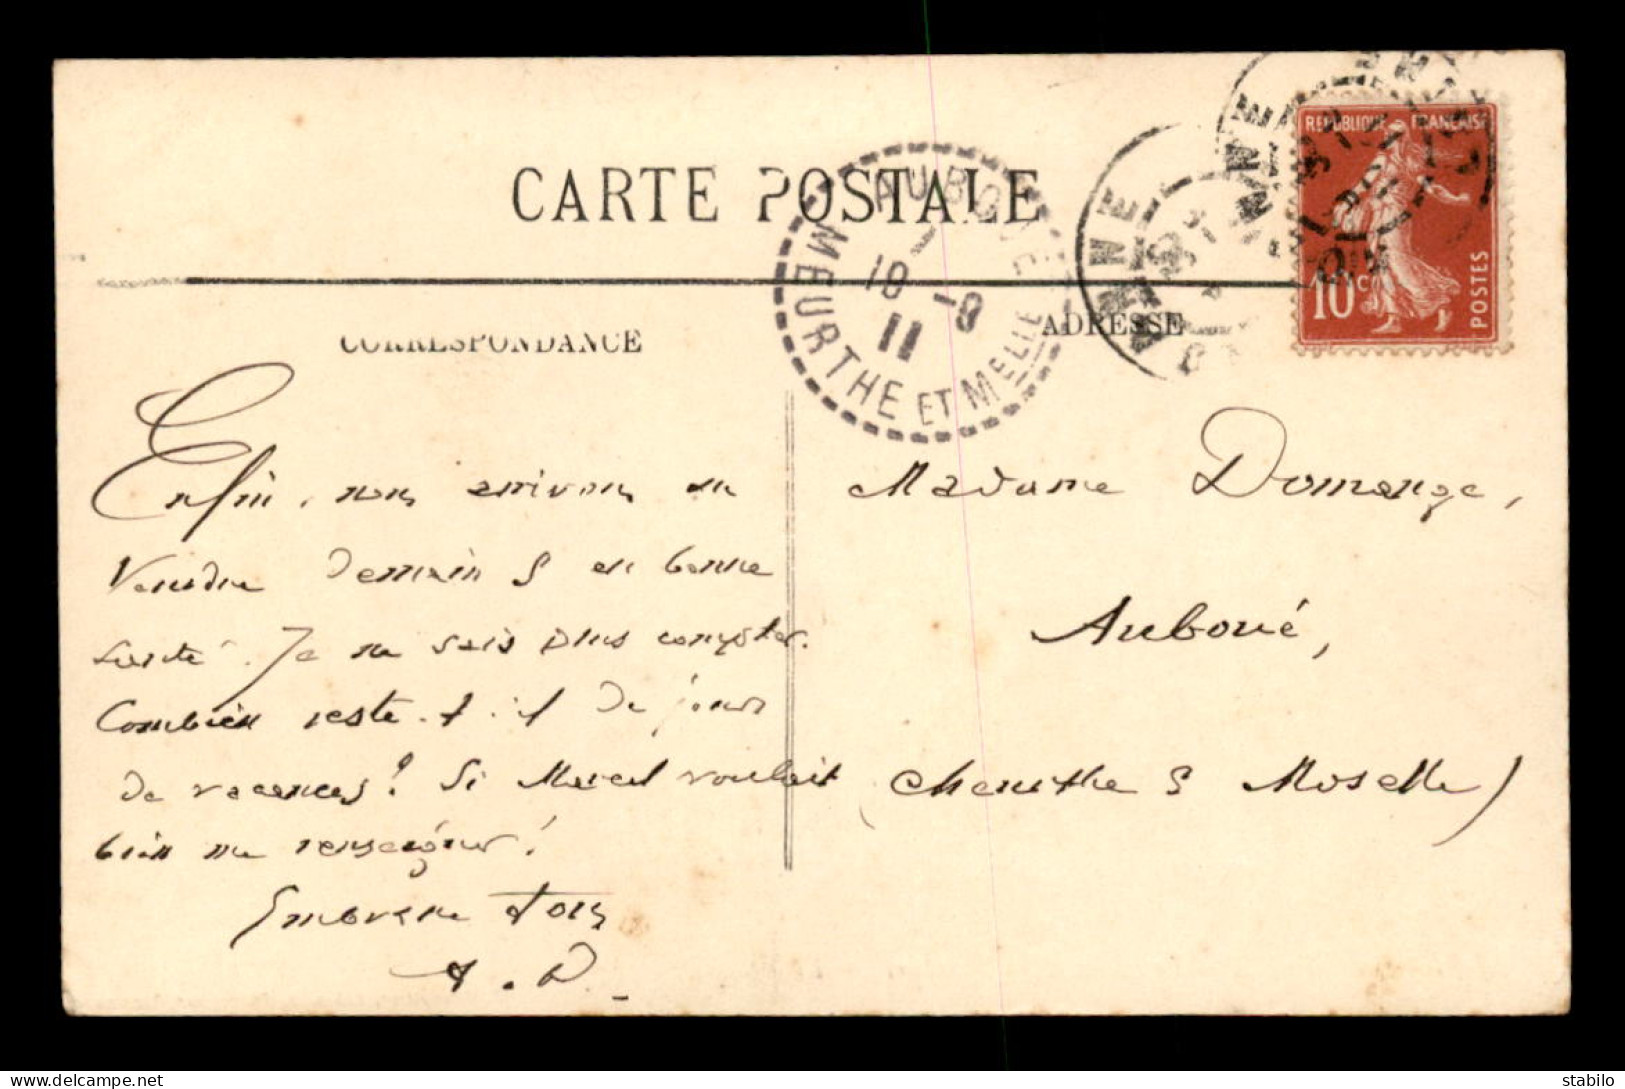 CARTE POSTALE
CORRESPONDANCE
ADRESSE
REPUBLIQUE FRANÇAISE
10 c
POSTES
AUBOUÉ
18 - 9
11
MEURTHE ET MELLE
Enfin, nous arrivons au
Vendu demain & en bonne
santé. Je ne sais plus compter.
Combien reste-t-il de jours
de vacances? Si Marcel voulait
bien me renseigner!
Embrasse tous
A. D.
Madame Domange,
Auboué,
(Meurthe & Moselle)
delcampe.net
stabilo